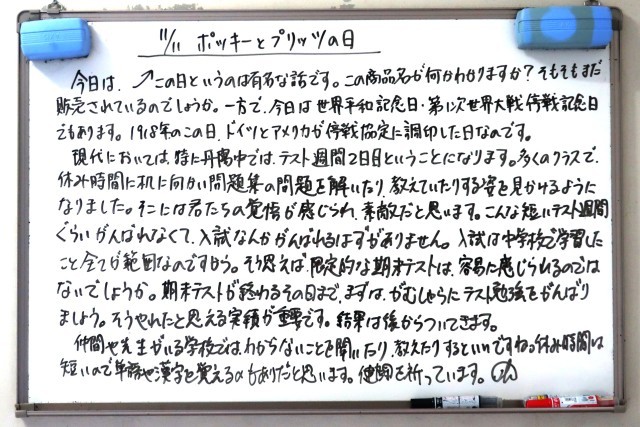 11/11 ポッキーとプリッツの日
今日は、↗この日というのは有名な話です。この商品名が何かわかりますか？そもそもまだ
販売されているのでしょうか。一方で、今日は世界平和記念日・第1次世界大戦停戦記念日
でもあります。1918年のこの日、ドイツとアメリカが停戦協定に調印した日なのです。
現代においては、特に丹陽中では、テスト週間2日目ということになります。多くのクラスで、
休み時間に机に向かい問題集の問題を解いたり、教えていたりする姿を見かけるように
なりました。そこには君たちの覚悟が感じられ、素敵だと思います。こんな短いテスト週間
ぐらいがんばれなくて、入試なんかがんばれるはずがありません。入試は中学校で学習した
こと全てが範囲なのですから。そう思えば、限定的な期末テストは、容易に感じられるのでは
ないでしょうか。期末テストが終わるその日まで、まずは、がむしゃらにテスト勉強をがんばり
ましょう。そうやれたと思える実績が重要です。結果は後からついてきます。
仲間や先生がいる学校では、わからないことを聞いたり、教えたりするといいですね。休み時間は
短いので単語や漢字を覚えるのもありだと思います。健闘を祈っています。